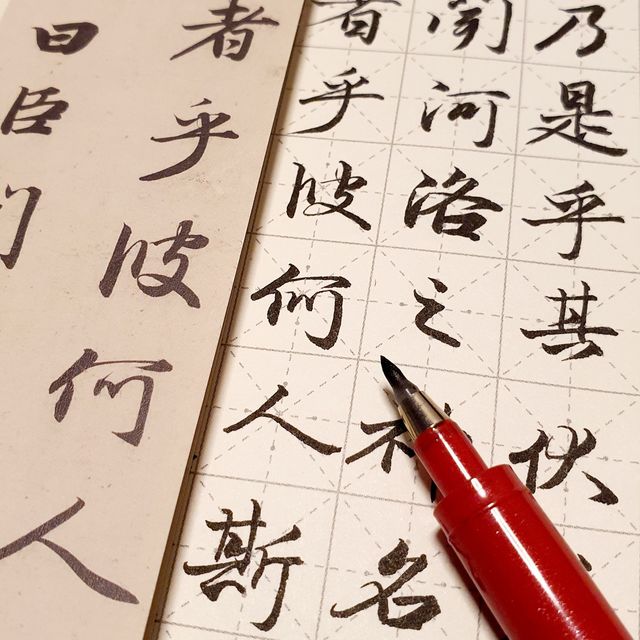 乃是乎其状
闻河洛之名
者乎彼何人斯
者乎彼何人
曰臣